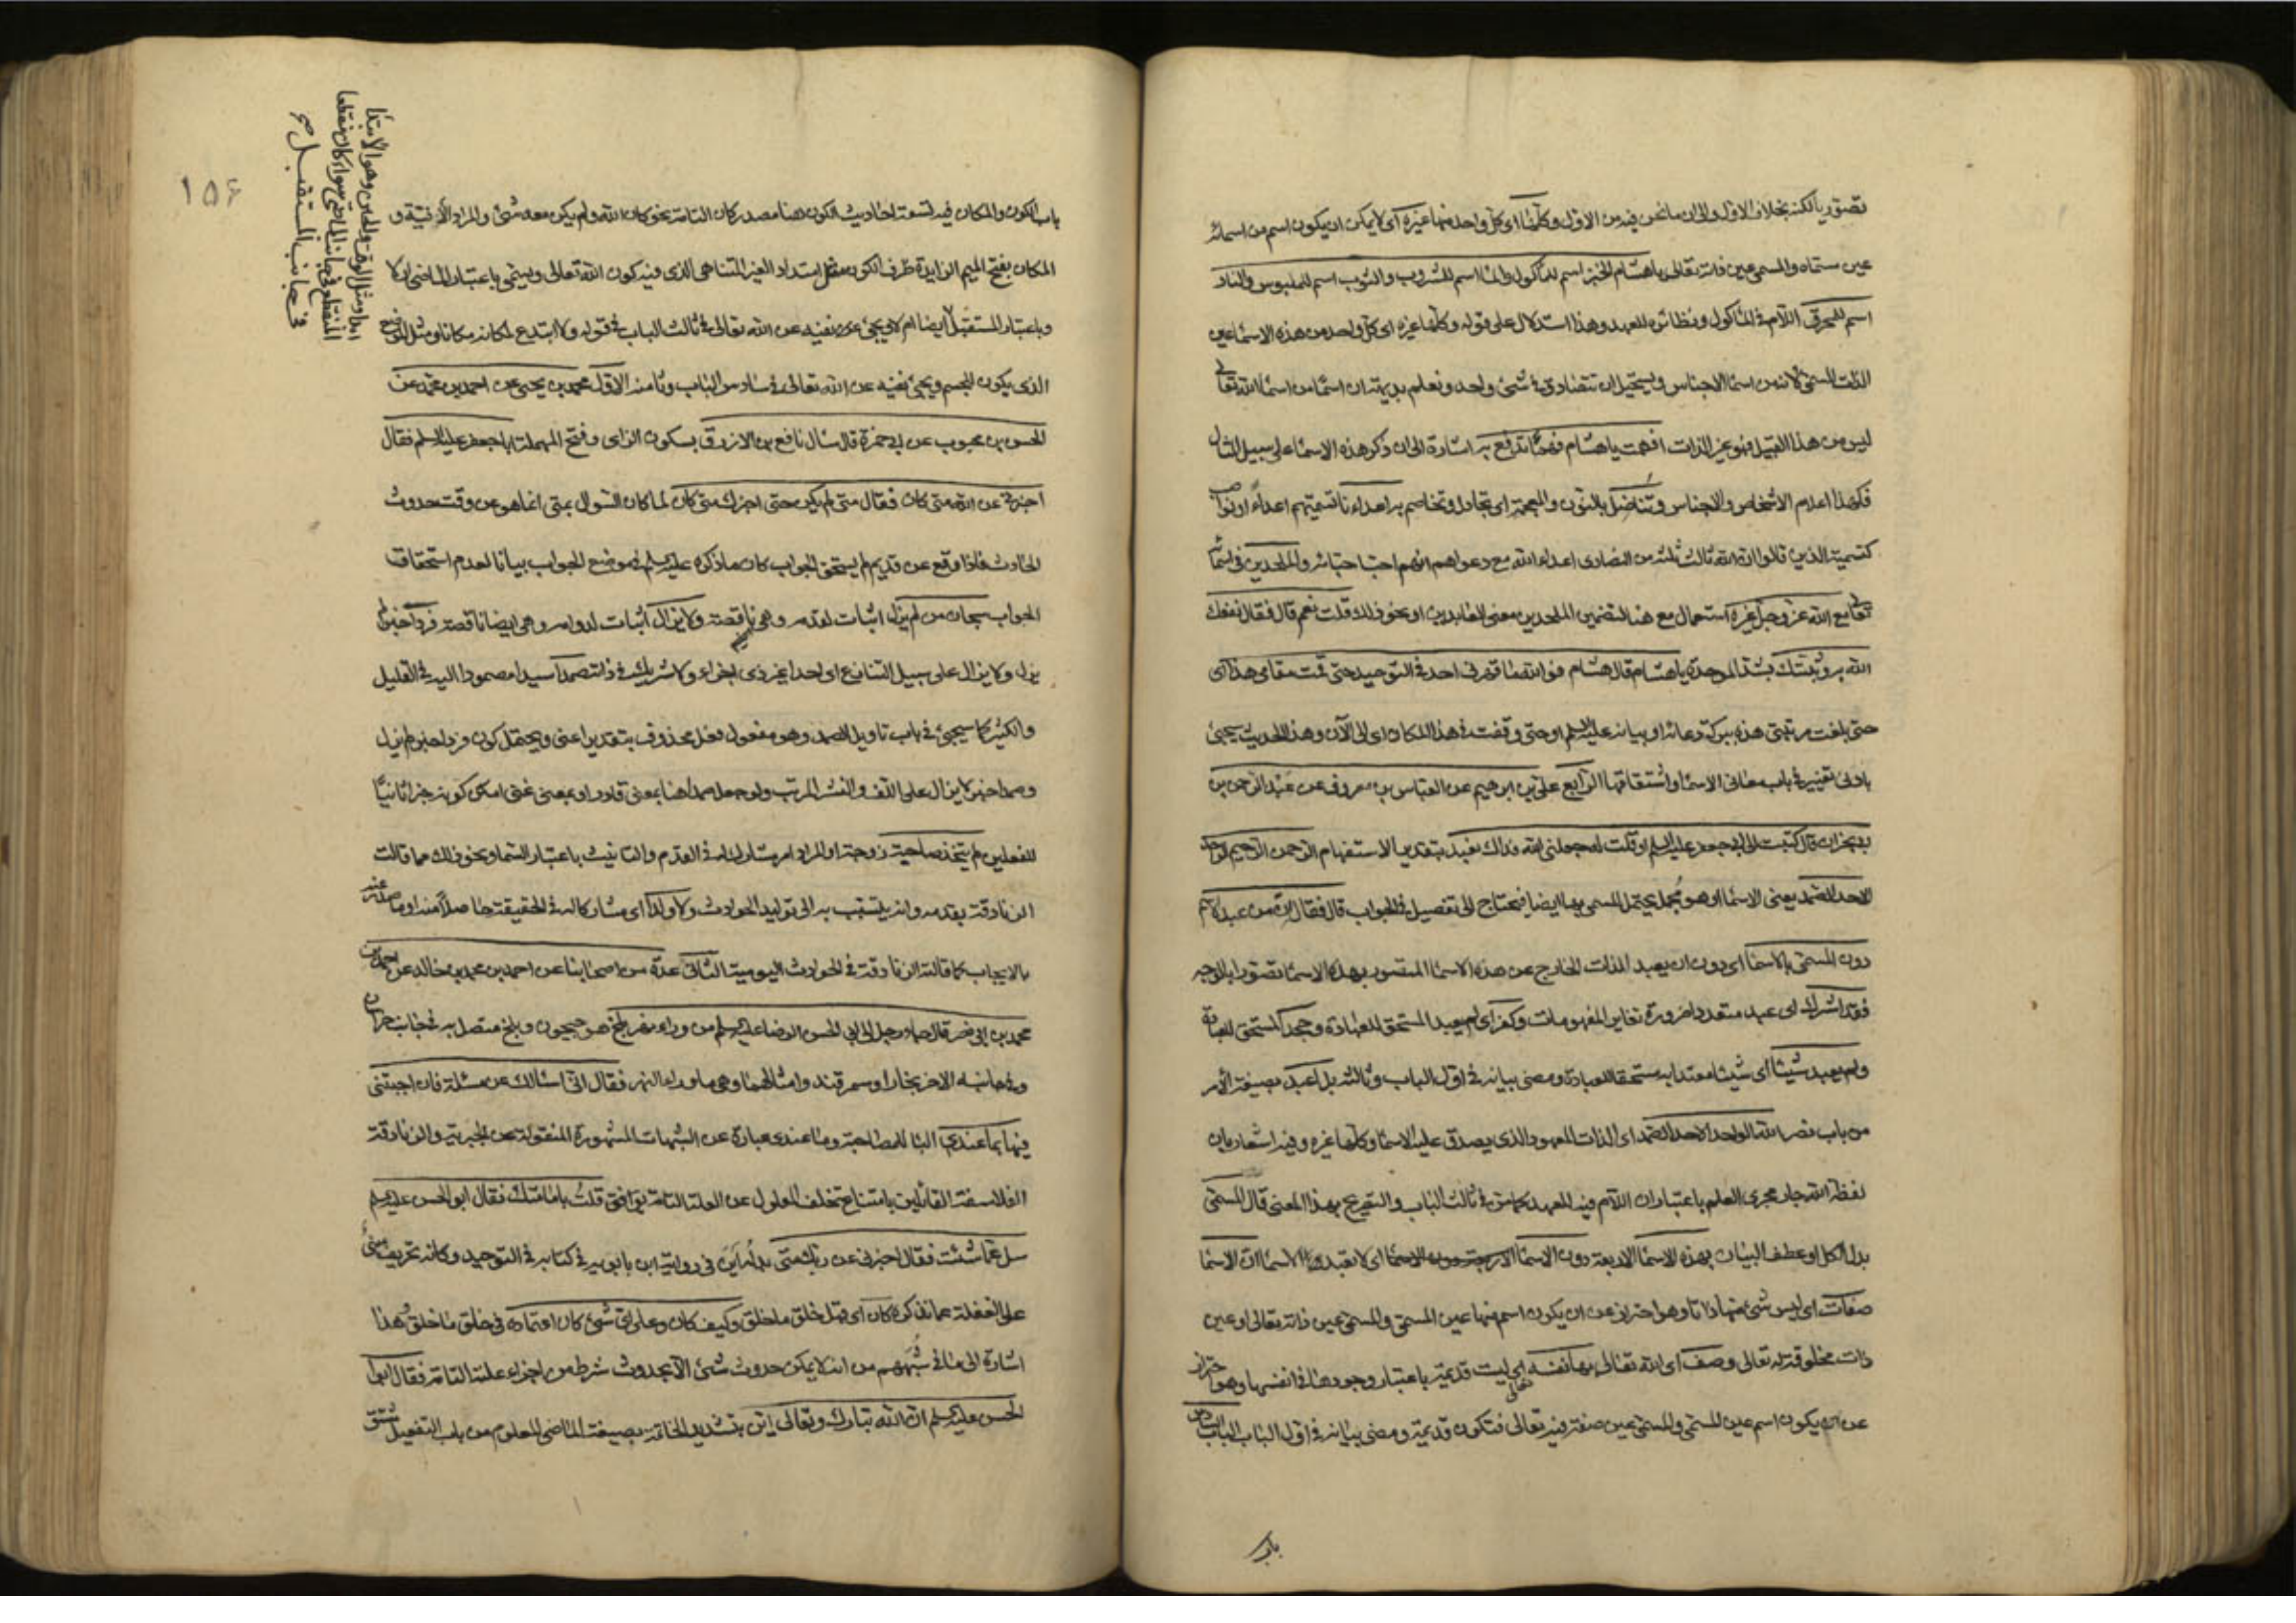 تصور بالكنه بخلاف الاول والى ان ما نحن فيه من الاول وكلها اى كل واحد منها غيره اى لا يمكن ان يكون اسم من اسمائه
عين مسماه والمسمى عين ذاته تعالى يا هشام الخبز اسم للمأكول والماء اسم للمشروب والثوب اسم للملبوس والنار
اسم للمحرق اللام فى المأكول ونظائره للعهد وهذا استدلال على قوله وكلها غيره اى كل واحد من هذه الاسماء عين
الذات المسمى لانه من اسماء الاجناس ويستحيل ان تتصادق فى شىء واحد ونعلم بديهة ان اسما من اسماء الله تعالى
ليس من هذا القبيل فهو غير الذات افهمت يا هشام فهما تدفع به اشارة الى ان ذكر هذه الاسماء على سبيل المثال
فكهذا اعلام الاشخاص والاجناس وتناضل بالنون والمعجمة اى تجادل وتخاصم به اعداءنا تسميتهم اعداء
كتسمية الذين قالوا ان الله ثالث ثلثة من النصارى اعداء الله مع دعواهم انهم احباء والملحدين فى اسمائه
تعالى مع الله عز وجل غيره استعمال مع هنا لتضمين الملحدين معنى العابدين او نحو ذلك قلت نعم قال فقال نفعك
الله به وثبتك بشد الموحدة يا هشام قال هشام فو الله ما قهرنى احد فى التوحيد حتى قمت مقامى هذا اى
حتى بلغت مرتبتى هذه ببركة دعائه او بيانه عليه السلم او حتى وقفت فى هذا المكان اى الى الآن وهذا الحديث يجىء
بادنى تغيير فى باب معانى الاسماء واشتقاقها الرابع على بن ابرهيم عن العباس بن معروف عن عبد الرحمن بن
ابى نجران قال كتبت الى ابى جعفر عليه السلم او قلت له جعلنى الله فداك نعبد بتقدير الاستفهام الرحمن الرحيم الواحد
الاحد الصمد يعنى الاسماء او هو مجمل يحتمل المسمى بها ايضا فيحتاج الى تفصيل فى الجواب قال فقال ان من عبد الاسم
دون المسمى بالاسماء اى دون ان يعبد الذات الخارج عن هذه الاسماء المتصور بهذه الاسماء تصورا بالوجه
فقد اشرك اى عبد متعددا ضرورة تغاير المفهومات وكفر اى لم يعبد المستحق للعبادة وجحد المستحق للعبادة
ولم يعبد شيئا اى شيئا معتدا به مستحقا للعبادة ومضى بيانه فى اول الباب وثالثه بل اعبد بصيغة الامر
من باب نصر الله الواحد الاحد الصمد اى الذات المعهود الذى يصدق عليه الاسماء وكلها غيره وفيه اشعار بان
لفظة الله جار مجرى العلم باعتبار ان اللام فيه للعهد كما مر فى ثالث الباب والتصريح بهذا المعنى قال المسمى
بدل الكل او عطف البيان بهذه الاسماء الاربعة دون الاسماء اى لا تعبدوا الاسماء ان الاسماء
صفات اى ليس شىء منها ذاتا وهو احتراز عن ان يكون اسم منها عين المسمى والمسمى عين ذاته تعالى او عين
ذات مخلوقة له تعالى وصف اى الله تعالى بها نفسه اى ليست قديمة باعتبار وجودها فى انفسها وهو احتراز
عن ان يكون اسم عين المسمى والمسمى عين صفة فيه تعالى فتكون قديمة ومضى بيانه فى اول الباب الباب السادس
باب
باب الكون والمكان فيه تسعة احاديث الكون هنا مصدر كان التامة نحو كان الله ولم يكن معه شىء والمراد الازلية و
المكان بفتح الميم الزايدة ظرف الكون مثل امتداد الغير المتناهى الذى فيه كون الله تعالى ويسمى باعتبار الماضى ازلا
وباعتبار المستقبل ايضا ويجىء نفيه عن الله تعالى فى ثالث الباب فى قوله ولا ابتدع لمكانه مكانا ومثل الموضع
الذى يكون للجسم ويجىء نفيه عن الله تعالى فى سادس الباب وثامنه الاول محمد بن يحيى عن احمد بن محمد عن
الحسن بن محبوب عن ابى حمزة قال سأل نافع بن الازرق بسكون الزاى وفتح المهملة ابا جعفر عليه السلم فقال
اخبرنى عن الله متى كان فقال متى لم يكن حتى اخبرك متى كان لما كان السؤال بمتى انما هو عن وقت حدوث
الحادث فاذا وقع عن قديم لم يستحق الجواب كان ما ذكره عليه السلم فى موضع الجواب بيانا لعدم استحقاق
الجواب سبحان من لم يزل اثبات لقدمه وهى ناقصة ولا يزال اثبات لدوامه وهى ايضا ناقصة فردا خبر لم
يزل ولا يزال على سبيل التنازع اى احدا غير ذى اجزاء ولا شريك فى ذاته صمدا سيدا مصمودا اليه فى القليل
والكثير كما سيجىء فى باب تاويل الصمد وهو مفعول فعل محذوف بتقدير اعنى ويحتمل كون فردا خبر لم يزل
وصمدا خبر لا يزال على اللف والنشر المرتب ولو جعل صمدا هنا بمعنى قادر او بمعنى غنى امكن كونه خبرا ثانيا
للفعلين لم يتخذ صاحبة زوجة او المراد امر مشارك له فى القدم والتانيث باعتبار السماء ونحو ذلك مما قالت
الزنادقة بقدمه وانه يتسبب به الى توليد الحوادث ولا ولدا اى مشاركا له فى الحقيقة حاصلا منه او صادرا عنه
بالايجاب كما قالته الزنادقة فى الحوادث اليومية الثانى عدة من اصحابنا عن احمد بن محمد بن خالد عن احمد بن
محمد بن ابى نصر قال جاء رجل الى ابى الحسن الرضا عليه السلم من وراء نهر بلخ هو جيحون وبلخ متصل به فى جانب خراسان
وفى جانبه الاخر بخارا وسمرقند وامثالهما وهى ما وراء النهر فقال انى اسألك عن مسئلة فان اجبتنى
فيها بما عندى الباء للمصاحبة وما عندى عبارة عن الشبهات المشهورة المنقولة عن الجبرية والزنادقة
الفلاسفة القائلين بامتناع تخلف المعلول عن العلة التامة قلت بامامتك فقال ابو الحسن عليه السلم
سل عما شئت فقال اخبرنى عن ربك متى بدله اين فى رواية ابن بابويه فى كتابه فى التوحيد وكانه تحريف مبنى
على الغفلة عما نذكره كان اى قبل خلق ما خلق وكيف كان وعلى اى شىء كان اعتماده فى خلق ما خلق هذا
اشارة الى ما فى شبههم من انه لا يمكن حدوث شىء الا بحدوث شرط من اجزاء علته التامة فقال ابو
الحسن عليه السلم ان الله تبارك وتعالى اين بتشديد الخاتمة بصيغة الماضى المعلوم من باب التفعيل مشتق
١٥۶